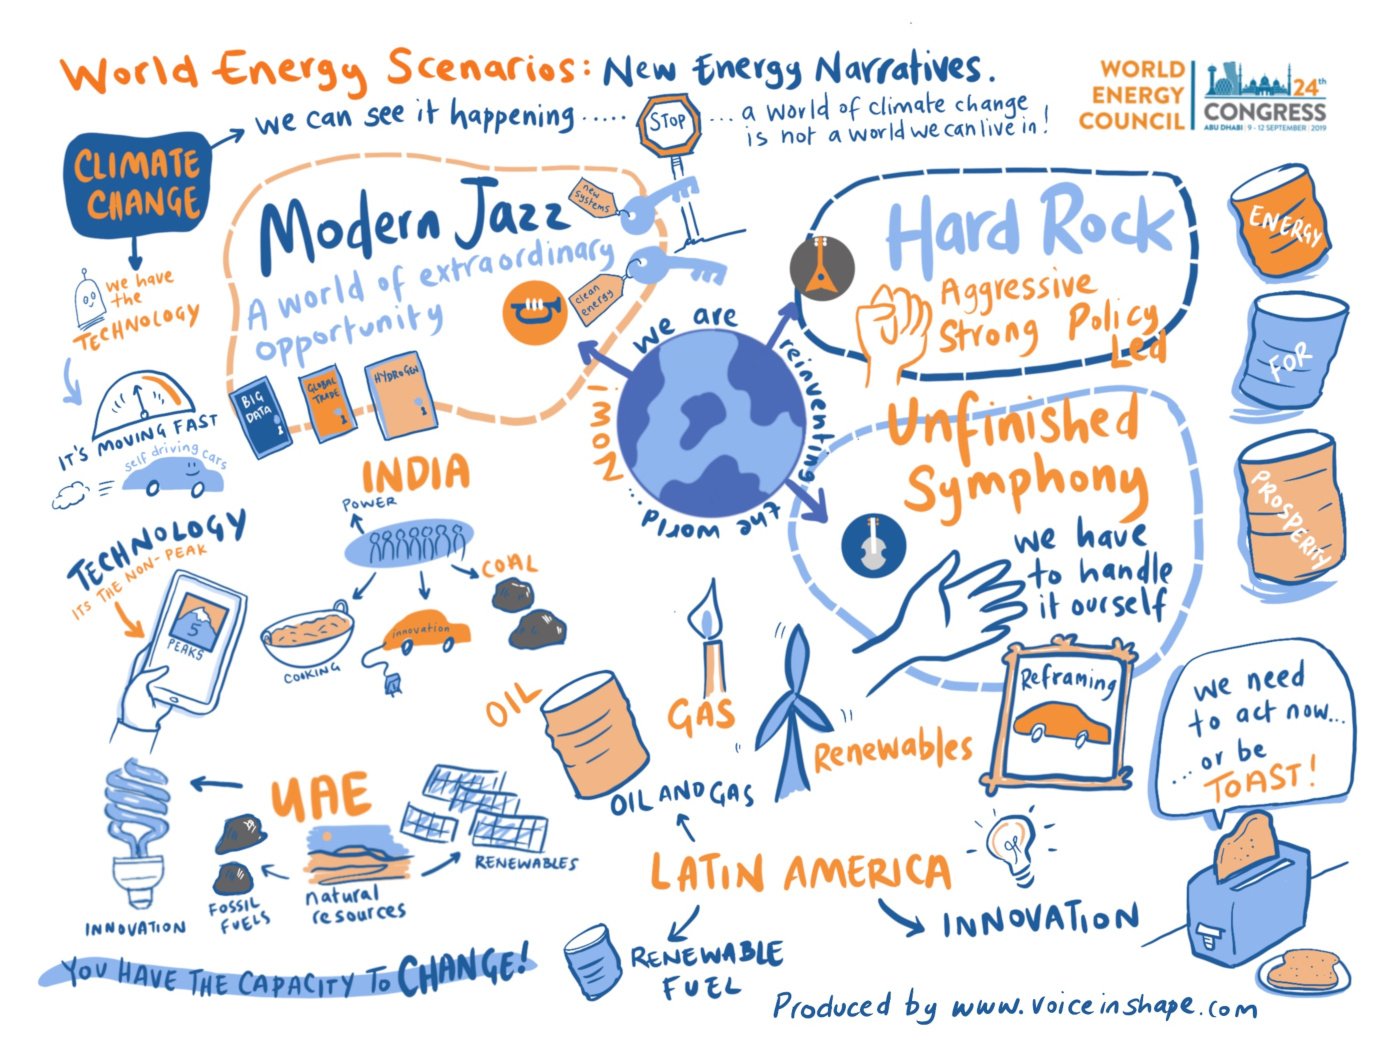 World Energy Scenarios: New Energy Narratives.
WORLD
ENERGY
COUNCIL
24th
CONGRESS
ABU DHABI | 9 - 12 SEPTEMBER | 2019
CLIMATE
CHANGE
we can see it happening .....
STOP
... a world of climate change
is not a world we can live in!
we have
the
TECHNOLOGY
IT'S MOVING FAST
self driving cars
Modern Jazz
A world of extraordinary
opportunity
new
systems
clean
energy
BIG
DATA
GLOBAL
TRADE
HYDROGEN
we are reinventing the world... NOW!
Hard Rock
Aggressive
Strong Policy
Led
Unfinished
Symphony
we have
to handle
it ourself
ENERGY
FOR
PROSPERITY
TECHNOLOGY
ITS THE NON-PEAK
5
PEAKS
INDIA
POWER
COAL
COOKING
innovation
OIL
GAS
OIL AND GAS
Renewables
Reframing
we need
to act now...
...or be
TOAST!
UAE
INNOVATION
FOSSIL
FUELS
natural
resources
RENEWABLES
LATIN AMERICA
RENEWABLE
FUEL
INNOVATION
YOU HAVE THE CAPACITY TO CHANGE!
Produced by www.voiceinshape.com